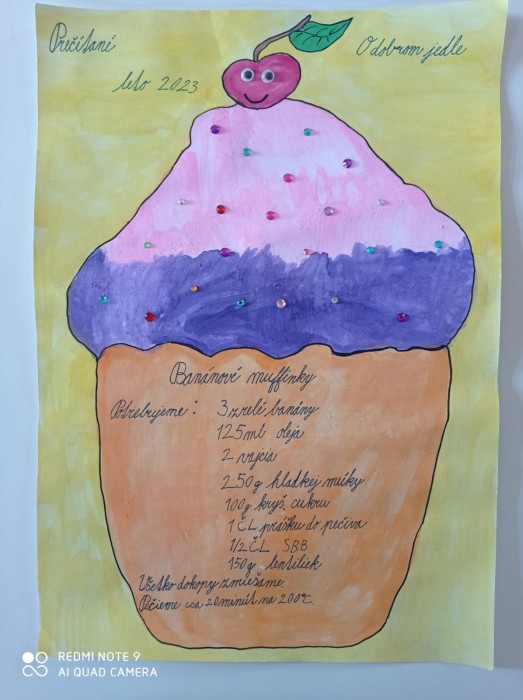 Prečítané
O dobrom jedle
leto 2023
Banánové muffinky
Potrebujeme: 3 zrelé banány
125ml oleja
2 vajcia
250g hladkej múky
100g kryš. cukru
1 ČL prášku do pečiva
1/2 ČL SBB
150g lentiliek
Všetko dokopy zmiešame.
Pečieme cca 20minút na 200°C.
REDMI NOTE 9
AI QUAD CAMERA